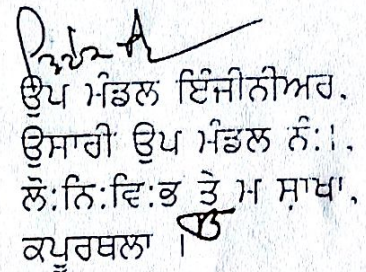 ਉਪ ਮੰਡਲ ਇੰਜੀਨੀਅਰ,
ਉਸਾਰੀ ਉਪ ਮੰਡਲ ਨੰ:1,
ਲੋ:ਨਿ:ਵਿ:ਭ ਤੇ ਮ ਸ਼ਾਖਾ,
ਕਪੂਰਥਲਾ ।